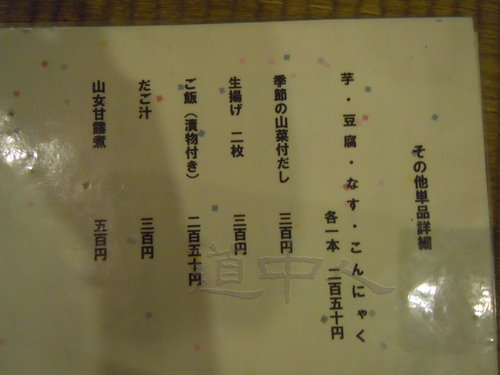 その他単品詳細
芋・豆腐・なす・こんにゃく
各一本 二百五十円
季節の山菜付だし 三百円
生揚げ 二枚 三百円
ご飯（漬物付き） 二百五十円
だご汁 三百円
山女甘露煮 五百円
道中人